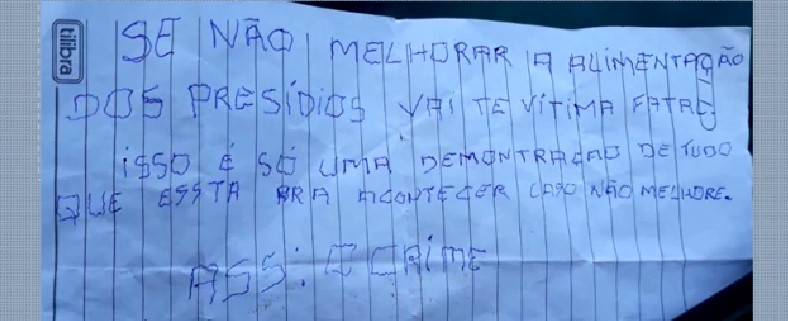 tilibra
SE NÃO MELHORAR A ALIMENTAÇÃO
DOS PRESÍDIOS VAI TE VÍTIMA FATAL
ISSO É SÓ UMA DEMONTRAÇAO DE TUDO
QUE ESSTA PRA ACONTECER CASO NÃO MELHORE.
ASS: O CRIME